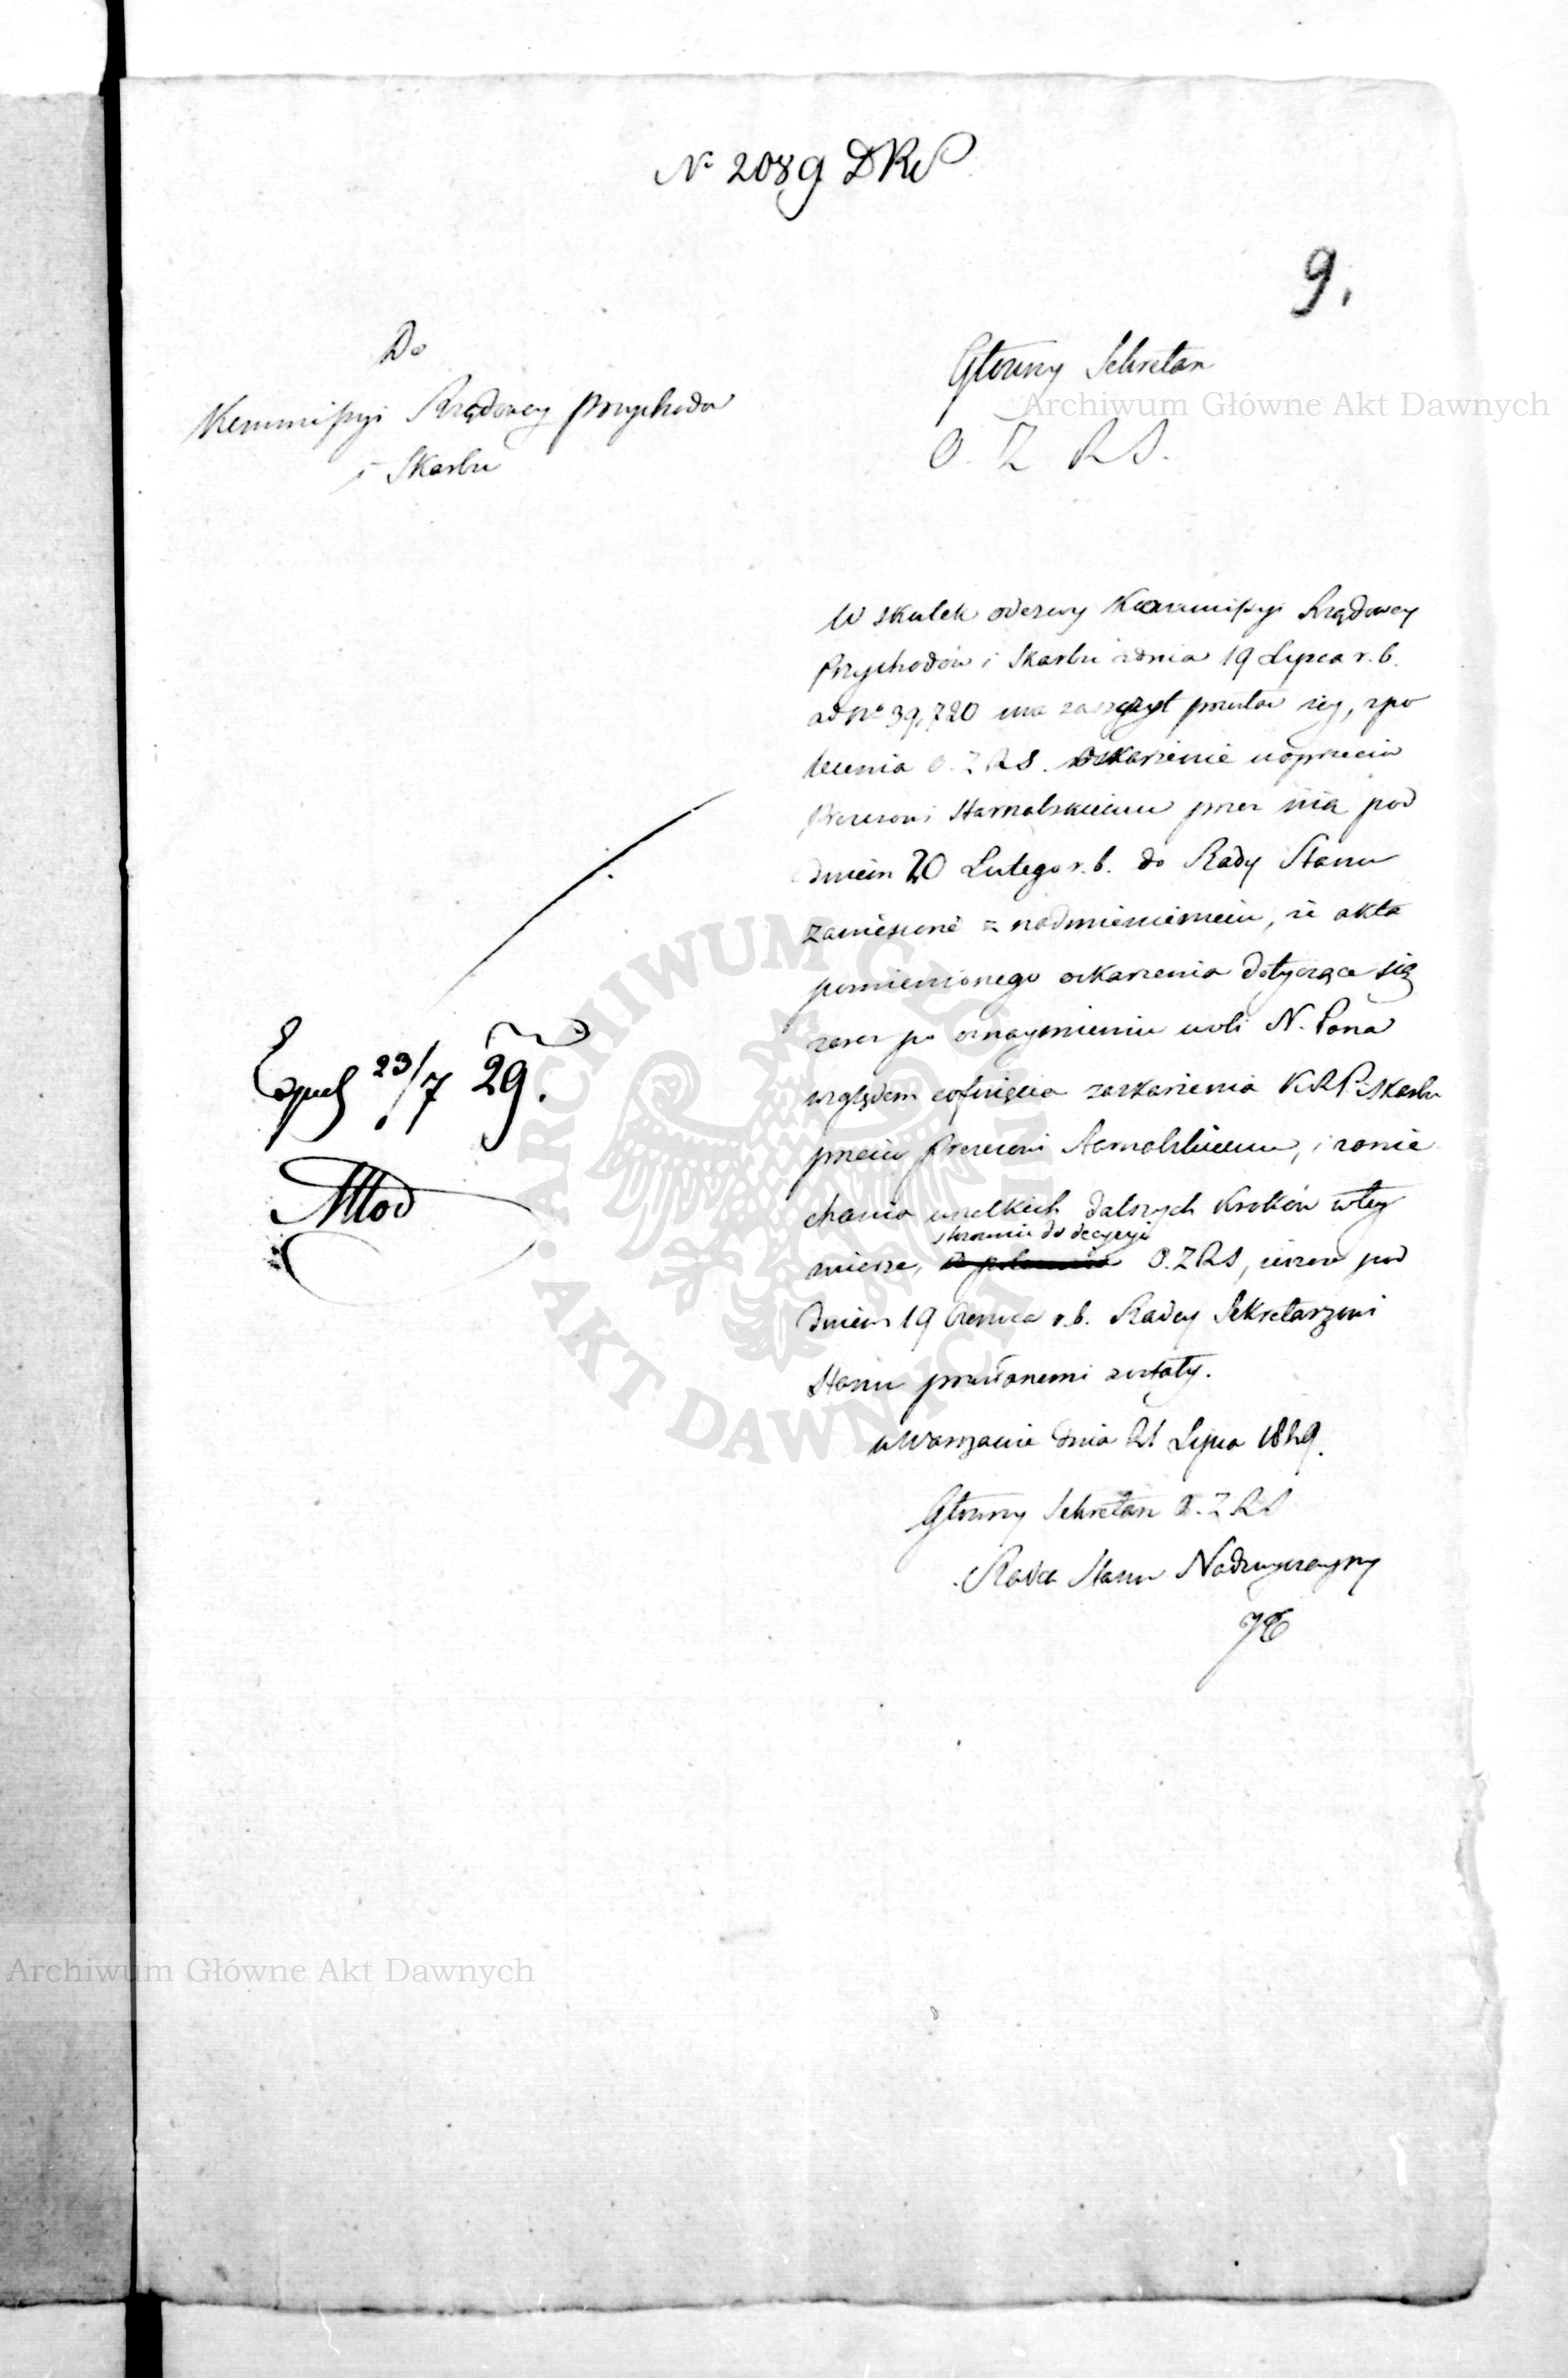 Nº 2089 DRS
9.
Do
Kommissyi Rządowey Przychodów
i Skarbu
Główny Sekretarz
O. Z R S.
Archiwum Główne Akt Dawnych
W skutek odezwy Kommissyi Rządowey
Przychodów i Skarbu zdnia 19 Lipca r. b.
ad Nº 39,720 ma zaszczyt przesłać jey, z po
lecenia O. Z R S. oskarżenie naprzeciw
Prezesowi Harnolskiemu przez nią pod
dniem 20 Lutego r. b. do Rady Stanu
zaniesione z nadmienieniem, że akta
pomienionego oskarżenia dotyczące się
zaraz po oznaymieniu woli N. Pana
względem cofnięcia zaskarżenia K R P i Skarbu
przeciw Prezesowi Harnolskiemu, i zanie
chania wszelkich dalszych kroków w tey
stosownie do decyzyi
mierze, O. Z R S, jeszcze pod
dniem 19 Czerwca r. b. Radcy Sekretarzowi
Stanu przesłanemi zostały.
w Warszawie dnia 21 Lipca 1829.
Główny Sekretarz O. Z R S
Radca Stanu Nadzwyczayny
Exped 23/7 29.
Młod
ARCHIWUM GŁÓWNE AKT DAWNYCH
Archiwum Główne Akt Dawnych